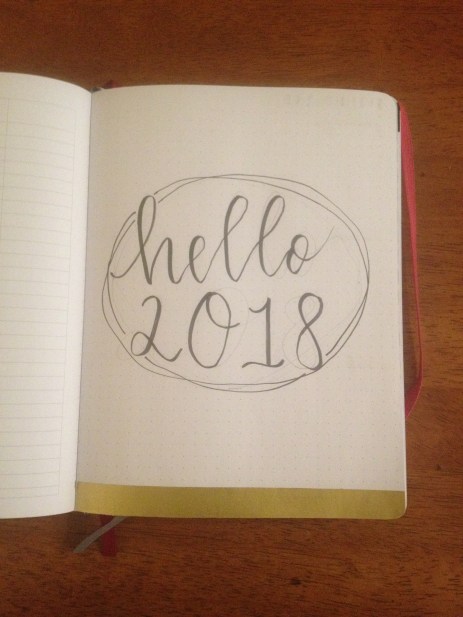 hello
2018